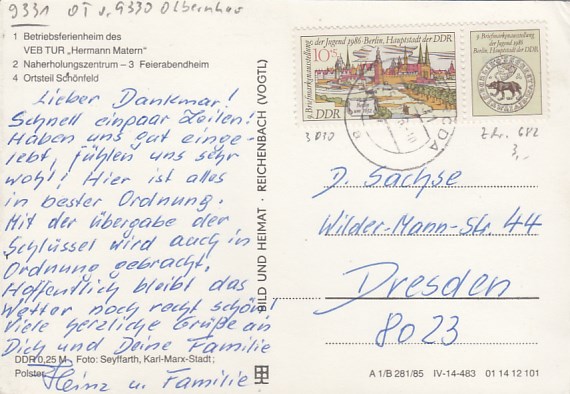 9331 OT v. 9330 Olbernhau
1 Betriebsferienheim des
VEB TUR „Hermann Matern"
2 Naherholungszentrum – 3 Feierabendheim
4 Ortsteil Schönfeld
Lieber Dankmar!
Schnell ein paar Zeilen!
Haben uns gut einge-
lebt, fühlen uns sehr
wohl! Hier ist alles
in bester Ordnung.
Mit der übergabe der
Schlüssel wird auch in
Ordnung gebracht.
Hoffentlich bleibt das
Wetter noch recht schön!
Viele herzliche Grüße an
Dich und Deine Familie
Heinz u. Familie
DDR 0,25 M Foto: Seyffarth, Karl-Marx-Stadt;
Polster
BILD UND HEIMAT · REICHENBACH (VOGTL)
9. Briefmarkenausstellung der Jugend 1986 · Berlin, Hauptstadt der DDR
10+5
Berlin
DDR
9. Briefmarkenausstellung
der Jugend 1986
Berlin, Hauptstadt der DDR
3010
Z.Nr. 682
3,-
D. Sachse
Wilder-Mann-Str. 44
Dresden
8023
A 1/B 281/85 IV-14-483 01 14 12 101